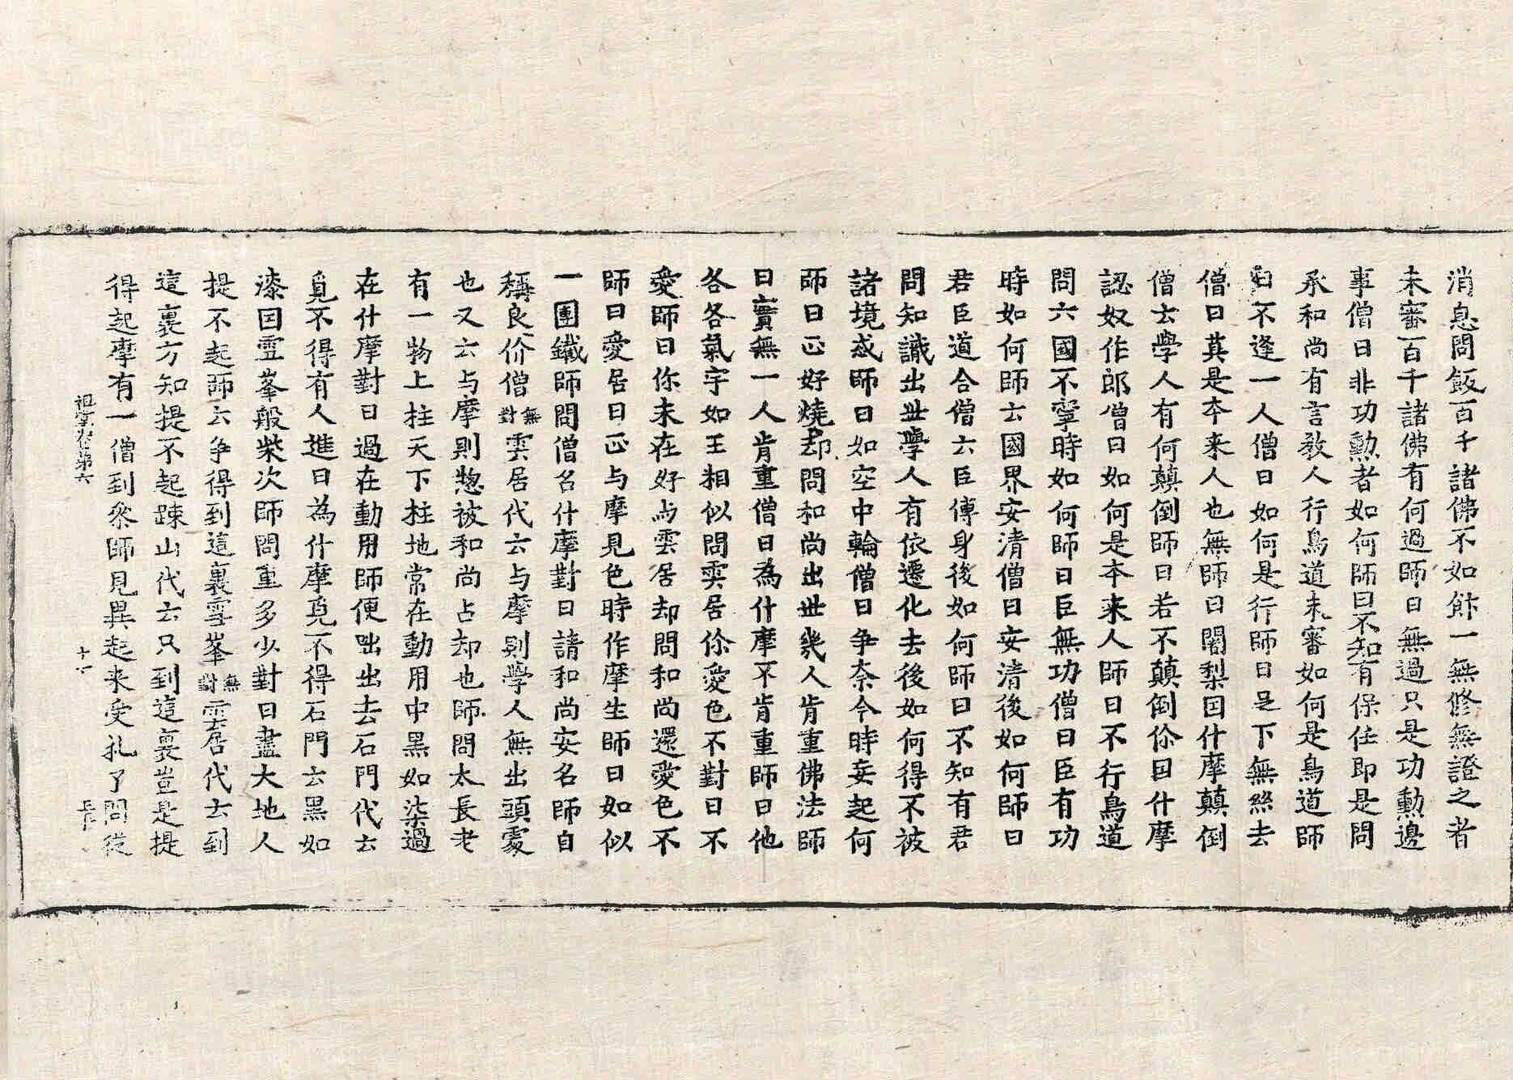 消息問飯百千諸佛不如餙一無修無證之者
未審百千諸佛有何過師曰無過只是功勳邊
事僧曰非功勳者如何師曰不知有保任即是問
承和尚有言教人行鳥道未審如何是鳥道師
曰不逢一人僧曰如何是行師曰足下無絲去
僧曰莫是夲来人也無師曰闍梨因什摩顛倒
僧云學人有何顛倒師曰若不顛倒你因什摩
認奴作郎僧曰如何是夲来人師曰不行鳥道
問六國不寧時如何師曰臣無功僧曰臣有功
時如何師云國界安清僧曰安清後如何師曰
君臣道合僧云臣傳身後如何師曰不知有君
問知識出世學人有依遷化去後如何得不被
諸境惑師曰如空中輪僧曰争奈今時妄起何
師曰正好燒却問和尚出世幾人肯重佛法師
曰實無一人肯重僧曰為什摩不肯重師曰他
各各氣宇如王相似問雲居你愛色不對曰不
愛師曰你未在好与雲居却問和尚還愛色不
師曰愛居曰正与摩見色時作摩生師曰如似
一團鐵師問僧名什摩對曰請和尚安名師自
稱良价僧無對雲居代云与摩則學人無出頭處
也又云与摩則惣被和尚占却也師問太長老
有一物上柱天下柱地常在動用中黒如柒過
在什摩對曰過在動用師便咄出出去石門代云
覓不得有人進曰為什摩覓不得石門云黒如
漆因雪峯般柴次師問重多少對曰盡大地人
提不起師云争得到這裏雪峯無對雲居代云到
這裏方知提不起踈山代云只到這裏豈是提
得起摩有一僧到叅師見異起来受礼了問從
祖堂卷第六
十一